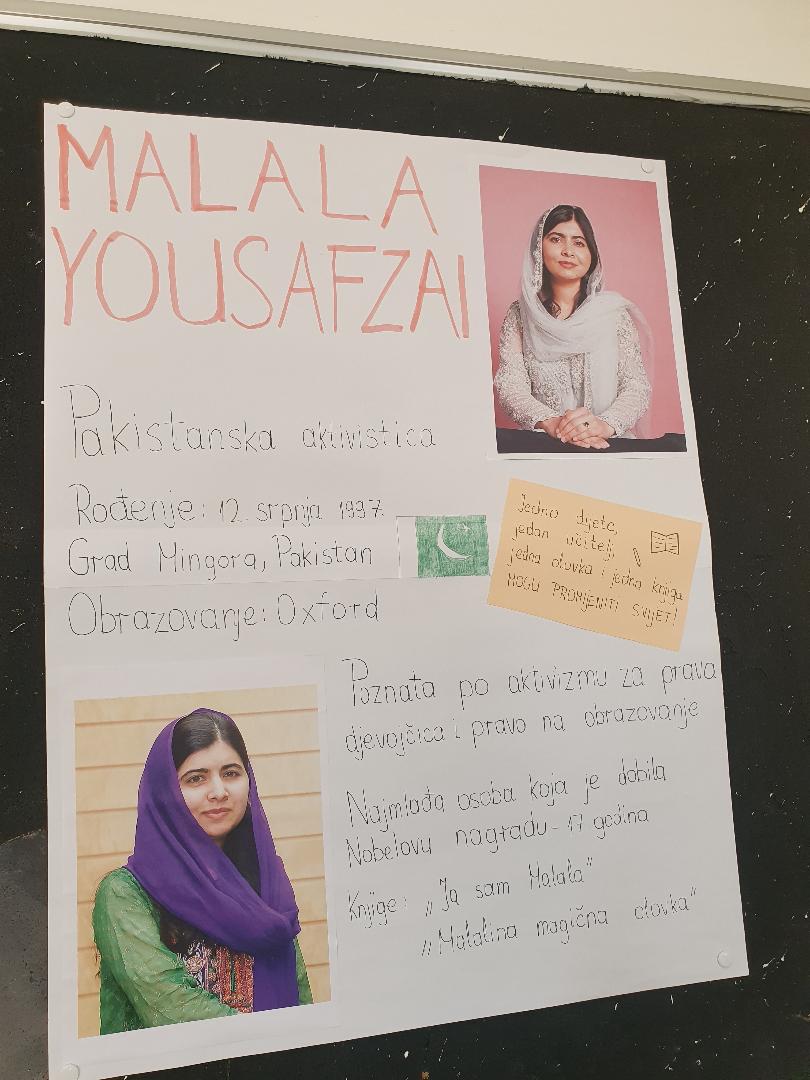 MALALA
YOUSAFZAI
Pakistanska aktivistica
Rođenje: 12. srpnja 1997.
Grad Mingora, Pakistan
Obrazovanje: Oxford
Jedno dijete,
jedan učitelj,
jedna olovka i jedna knjiga
MOGU PROMJENITI SVIJET!
Poznata po aktivizmu za prava
djevojčica i pravo na obrazovanje
Najmlađa osoba koja je dobila
Nobelovu nagradu - 17 godina
Knjige: „Ja sam Malala“
„Malalina magična olovka“